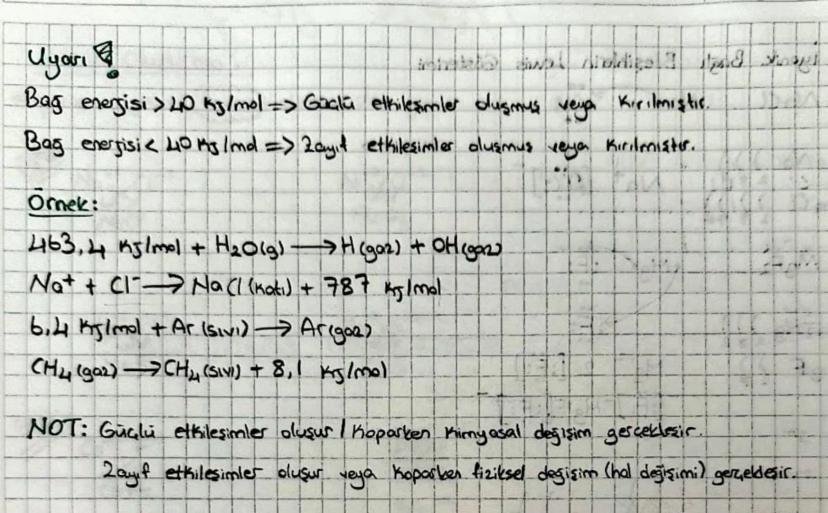 Uyarı!
Bağ enerjisi > 40 Kj/mol => Güçlü etkileşimler oluşmuş veya kırılmıştır.
Bağ enerjisi < 40 Kj/mol => Zayıf etkileşimler oluşmuş veya kırılmıştır.
Örnek:
463,4 Kj/mol + H2O(g) → H(gaz) + OH(gaz)
Na⁺ + Cl⁻ → NaCl(katı) + 787 Kj/mol
6,4 Kj/mol + Ar(sıvı) → Ar(gaz)
CH4(gaz) → CH4(sıvı) + 8,1 Kj/mol
NOT: Güçlü etkileşimler oluşur / koparken kimyasal değişim gerçekleşir.
Zayıf etkileşimler oluşur veya koparken fiziksel değişim (hal değişimi) gerçekleşir.